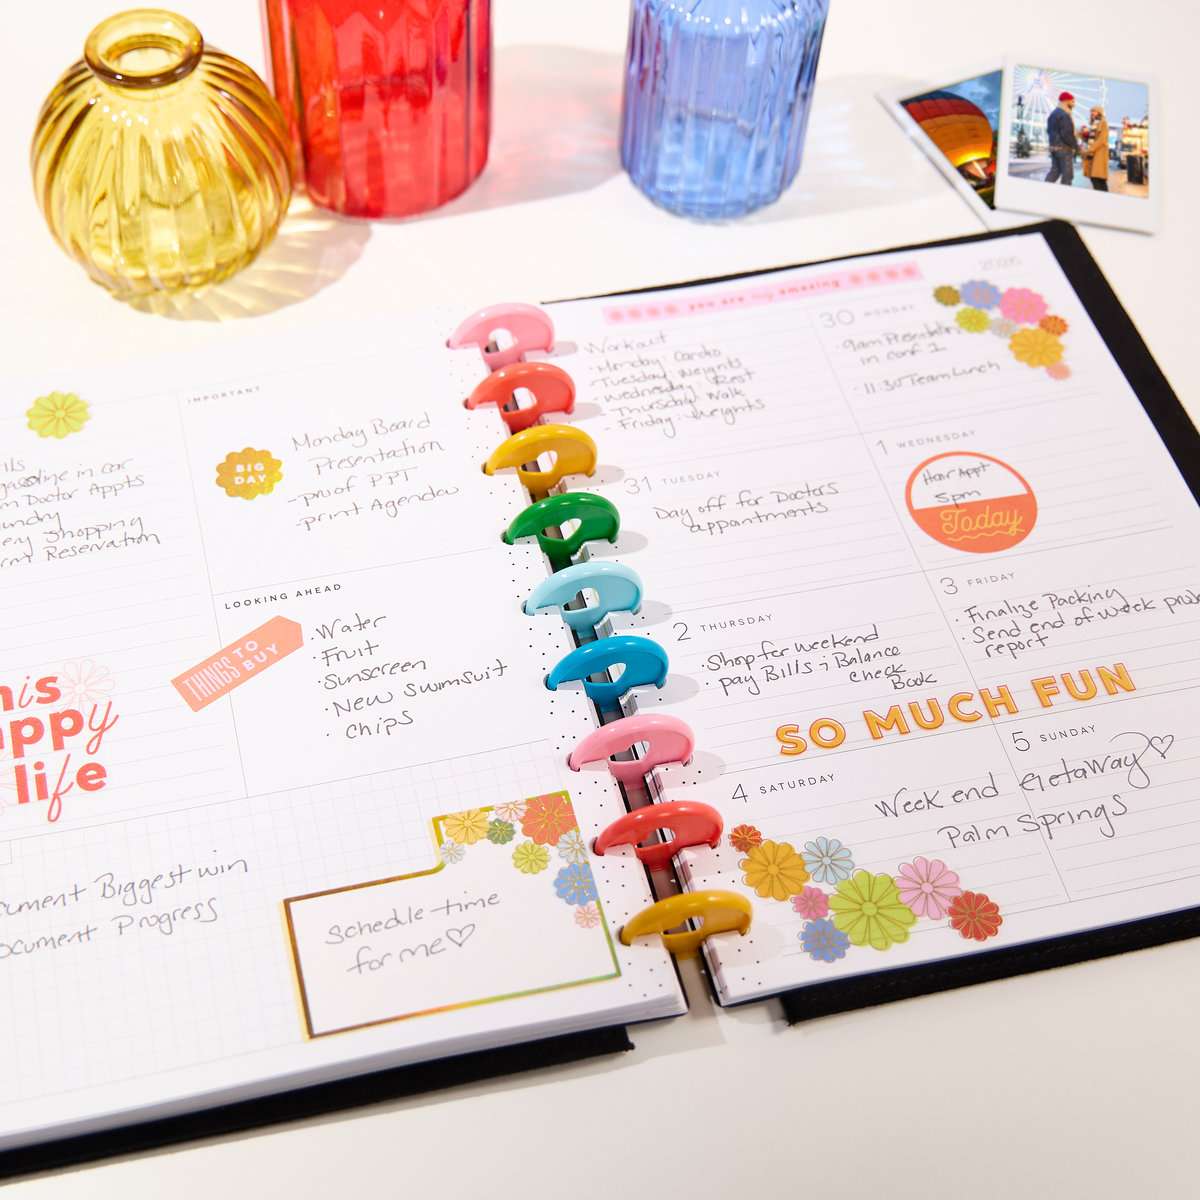 IMPORTANT
BIG
DAY
Monday Board
Presentation
-proof PPT
-print Agendas
gasoline in car
Doctor Appts
Shopping
Reservation
LOOKING AHEAD
THINGS TO
BUY
·Water
·Fruit
·Sunscreen
·New Swimsuit
·Chips
life
Biggest win
Progress
Schedle time
for me♡
2026
you are amazing
Workout
-Monday: Cardio
-Tuesday: Weights
-Wednesday: Rest
-Thursday: Walk
-Friday: Weights
30 MONDAY
·9am Presentation
in conf 1
·11:30 Team Lunch
31 TUESDAY
Day off for Doctors
appointments
1 WEDNESDAY
Hair Appt
5pm
Today
2 THURSDAY
·Shop for weekend
·pay Bills ; Balance
Check
Book
3 FRIDAY
·Finalize Packing
·Send end of week
report
SO MUCH FUN
4 SATURDAY
5 SUNDAY
Weekend Getaway♡
Palm Springs